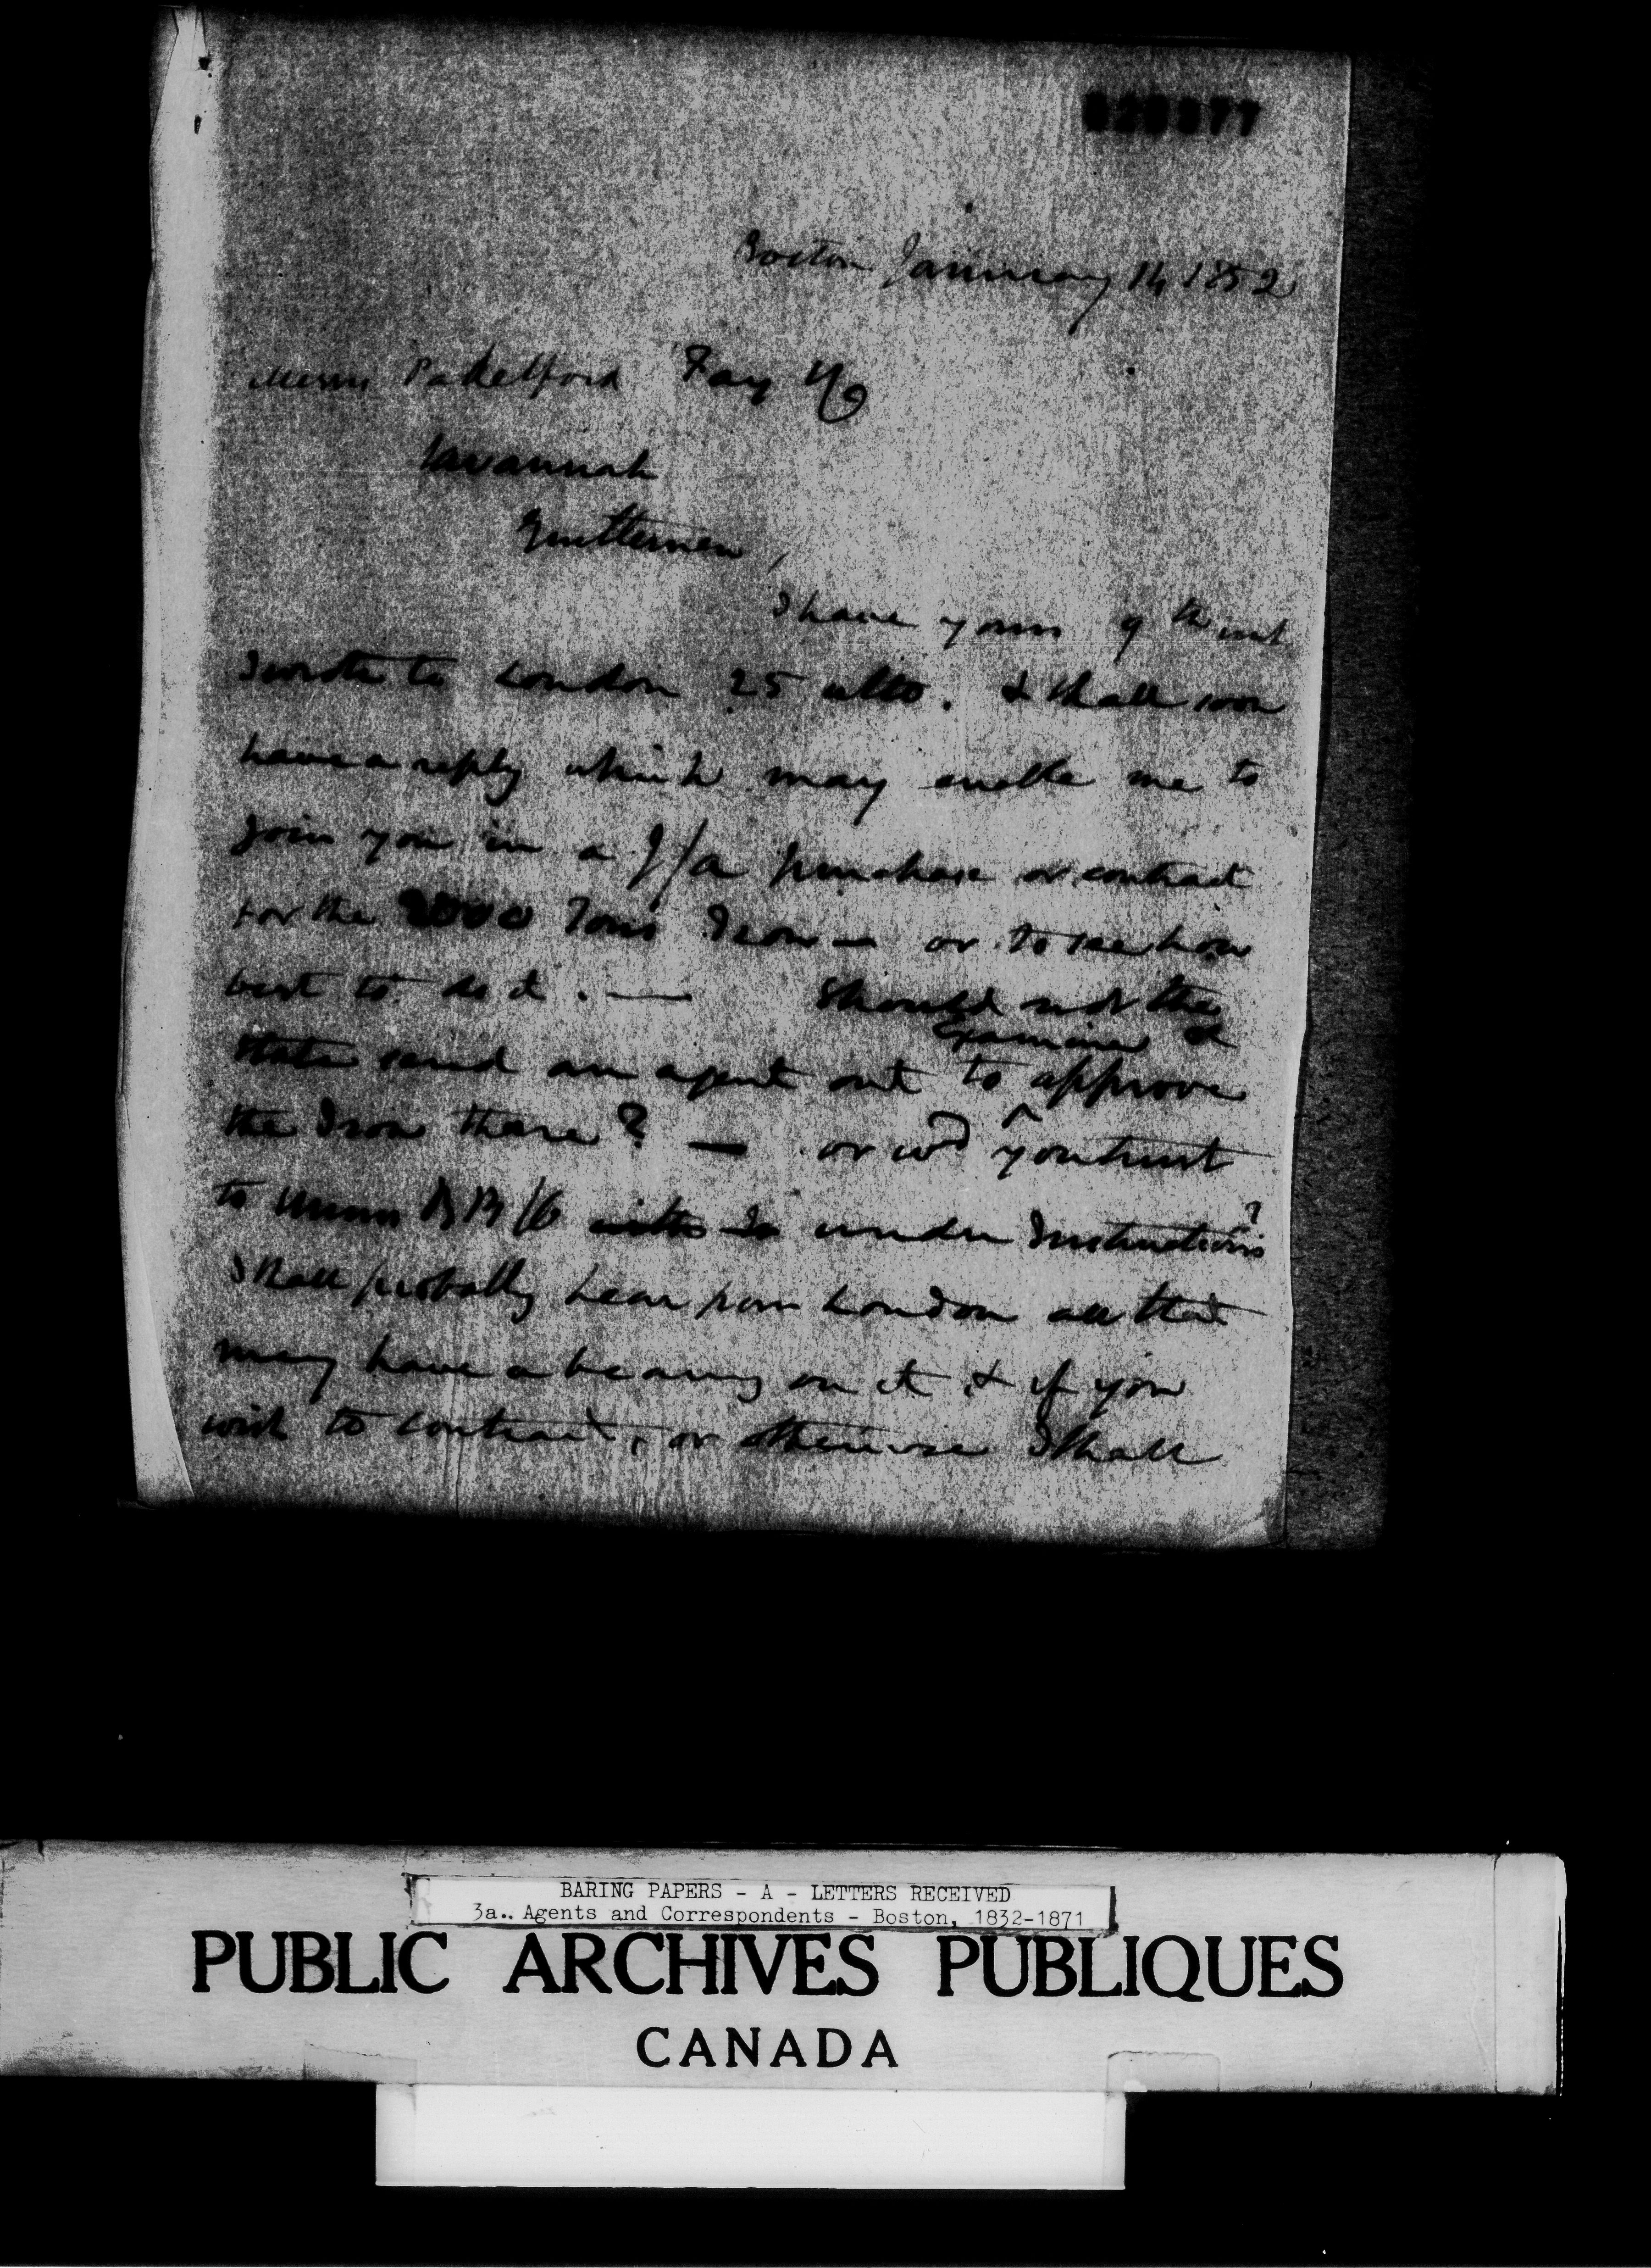 Boston January 14 1852
Messrs Padelford Fay & Co
Savannah
Gentlemen,
I have yours 9th inst
I wrote to London 25 ulto. & shall soon
have a reply which may enable me to
join you in a J/a purchase or contract
for the 2000 Tons Iron — or to see how
best to do it. — Should not the
examine &
State send an agent out to approve
the Iron there? — or wd you trust
to Messrs BB & Co under Instructions?
I shall probably hear from London all that
may have a bearing on it & if you
wish to contract, or otherwise I shall
BARING PAPERS - A - LETTERS RECEIVED
3a.. Agents and Correspondents - Boston, 1832-1871
PUBLIC ARCHIVES PUBLIQUES
CANADA